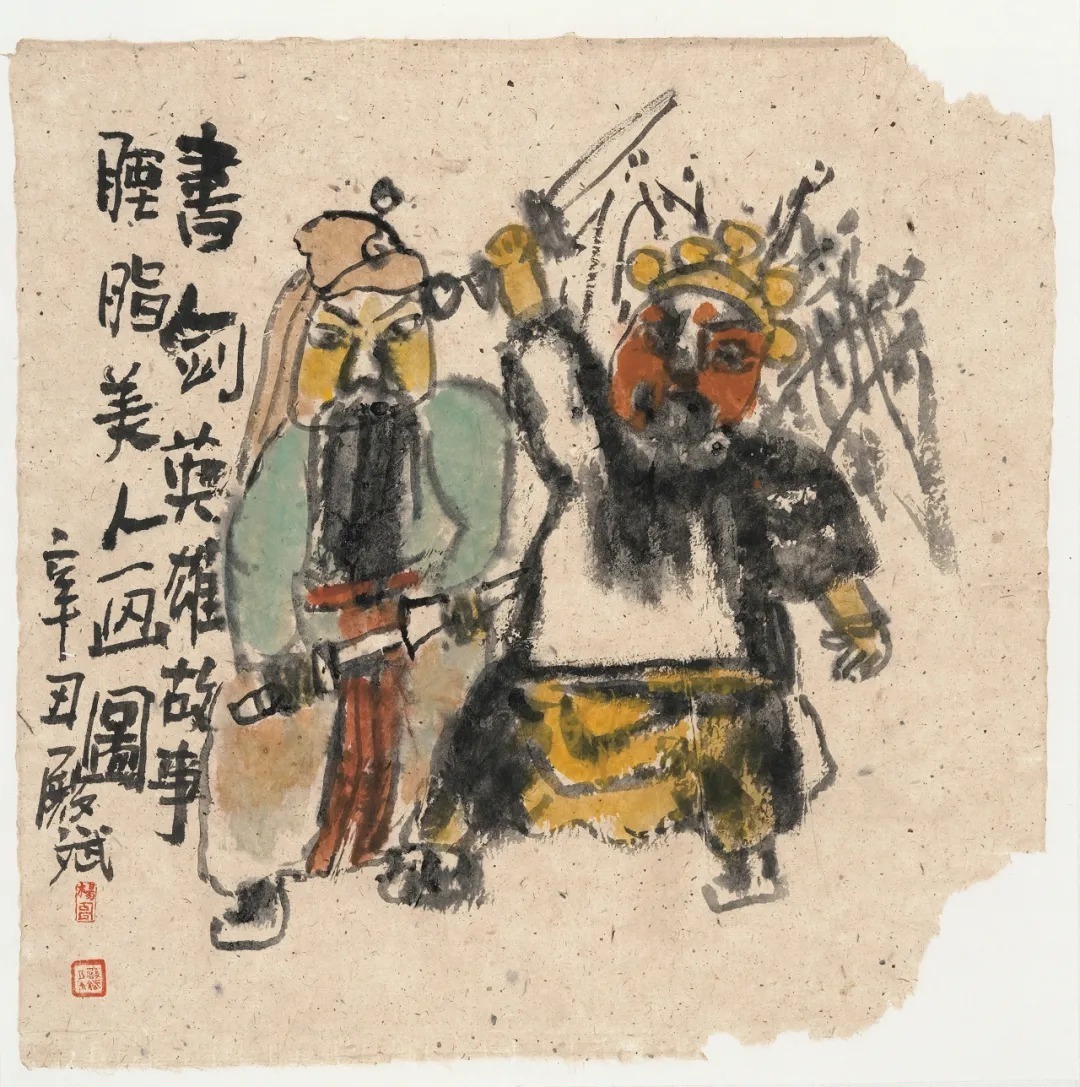 書劍英雄故事
胭脂美人画圖
辛丑殿斌